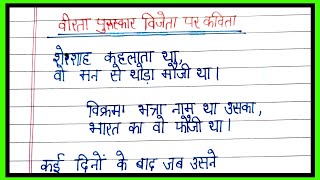 वीरता पुरस्कार विजेता पर कविता
शेरशाह कहलाता था,
वो मन से थोड़ा मौजी था।
विक्रम बत्रा नाम था उसका,
भारत का वो फौजी था।
कई दिनों के बाद जब उसने